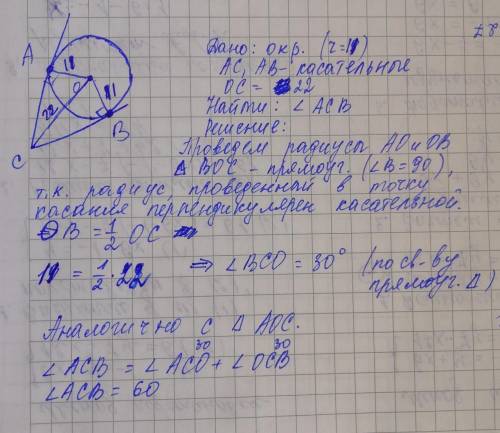 Дано: окр. (r=11)
AC, AB - касательные
OC = 22
Найти: ∠ACB
Решение:
Проведем радиусы AO и OB
Δ BOC - прямоуг. (∠B = 90),
т.к. радиус проведенный в точку
касания перпендикулярен касательной.
OB = 1/2 OC
11 = 1/2 · 22 ⇒ ∠BCO = 30° (по св-ву
прямоуг. Δ)
Аналогично с Δ AOC.
30 30
∠ACB = ∠ACO + ∠OCB
∠ACB = 60
A
11
O
22
11
B
C